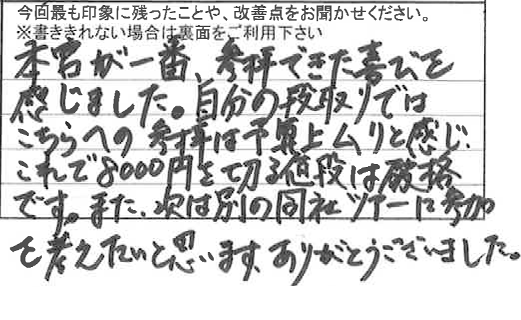 今回最も印象に残ったことや、改善点をお聞かせください。
※書ききれない場合は裏面をご利用下さい
本宮が一番、参拝できた喜びを
感じました。自分の段取りでは
こちらへの参拝は予算上ムリと感じ、
これで8000円を切る値段は破格
です。また、次は別の同社ツアーに参加
を考えたいと思います、ありがとうございました。